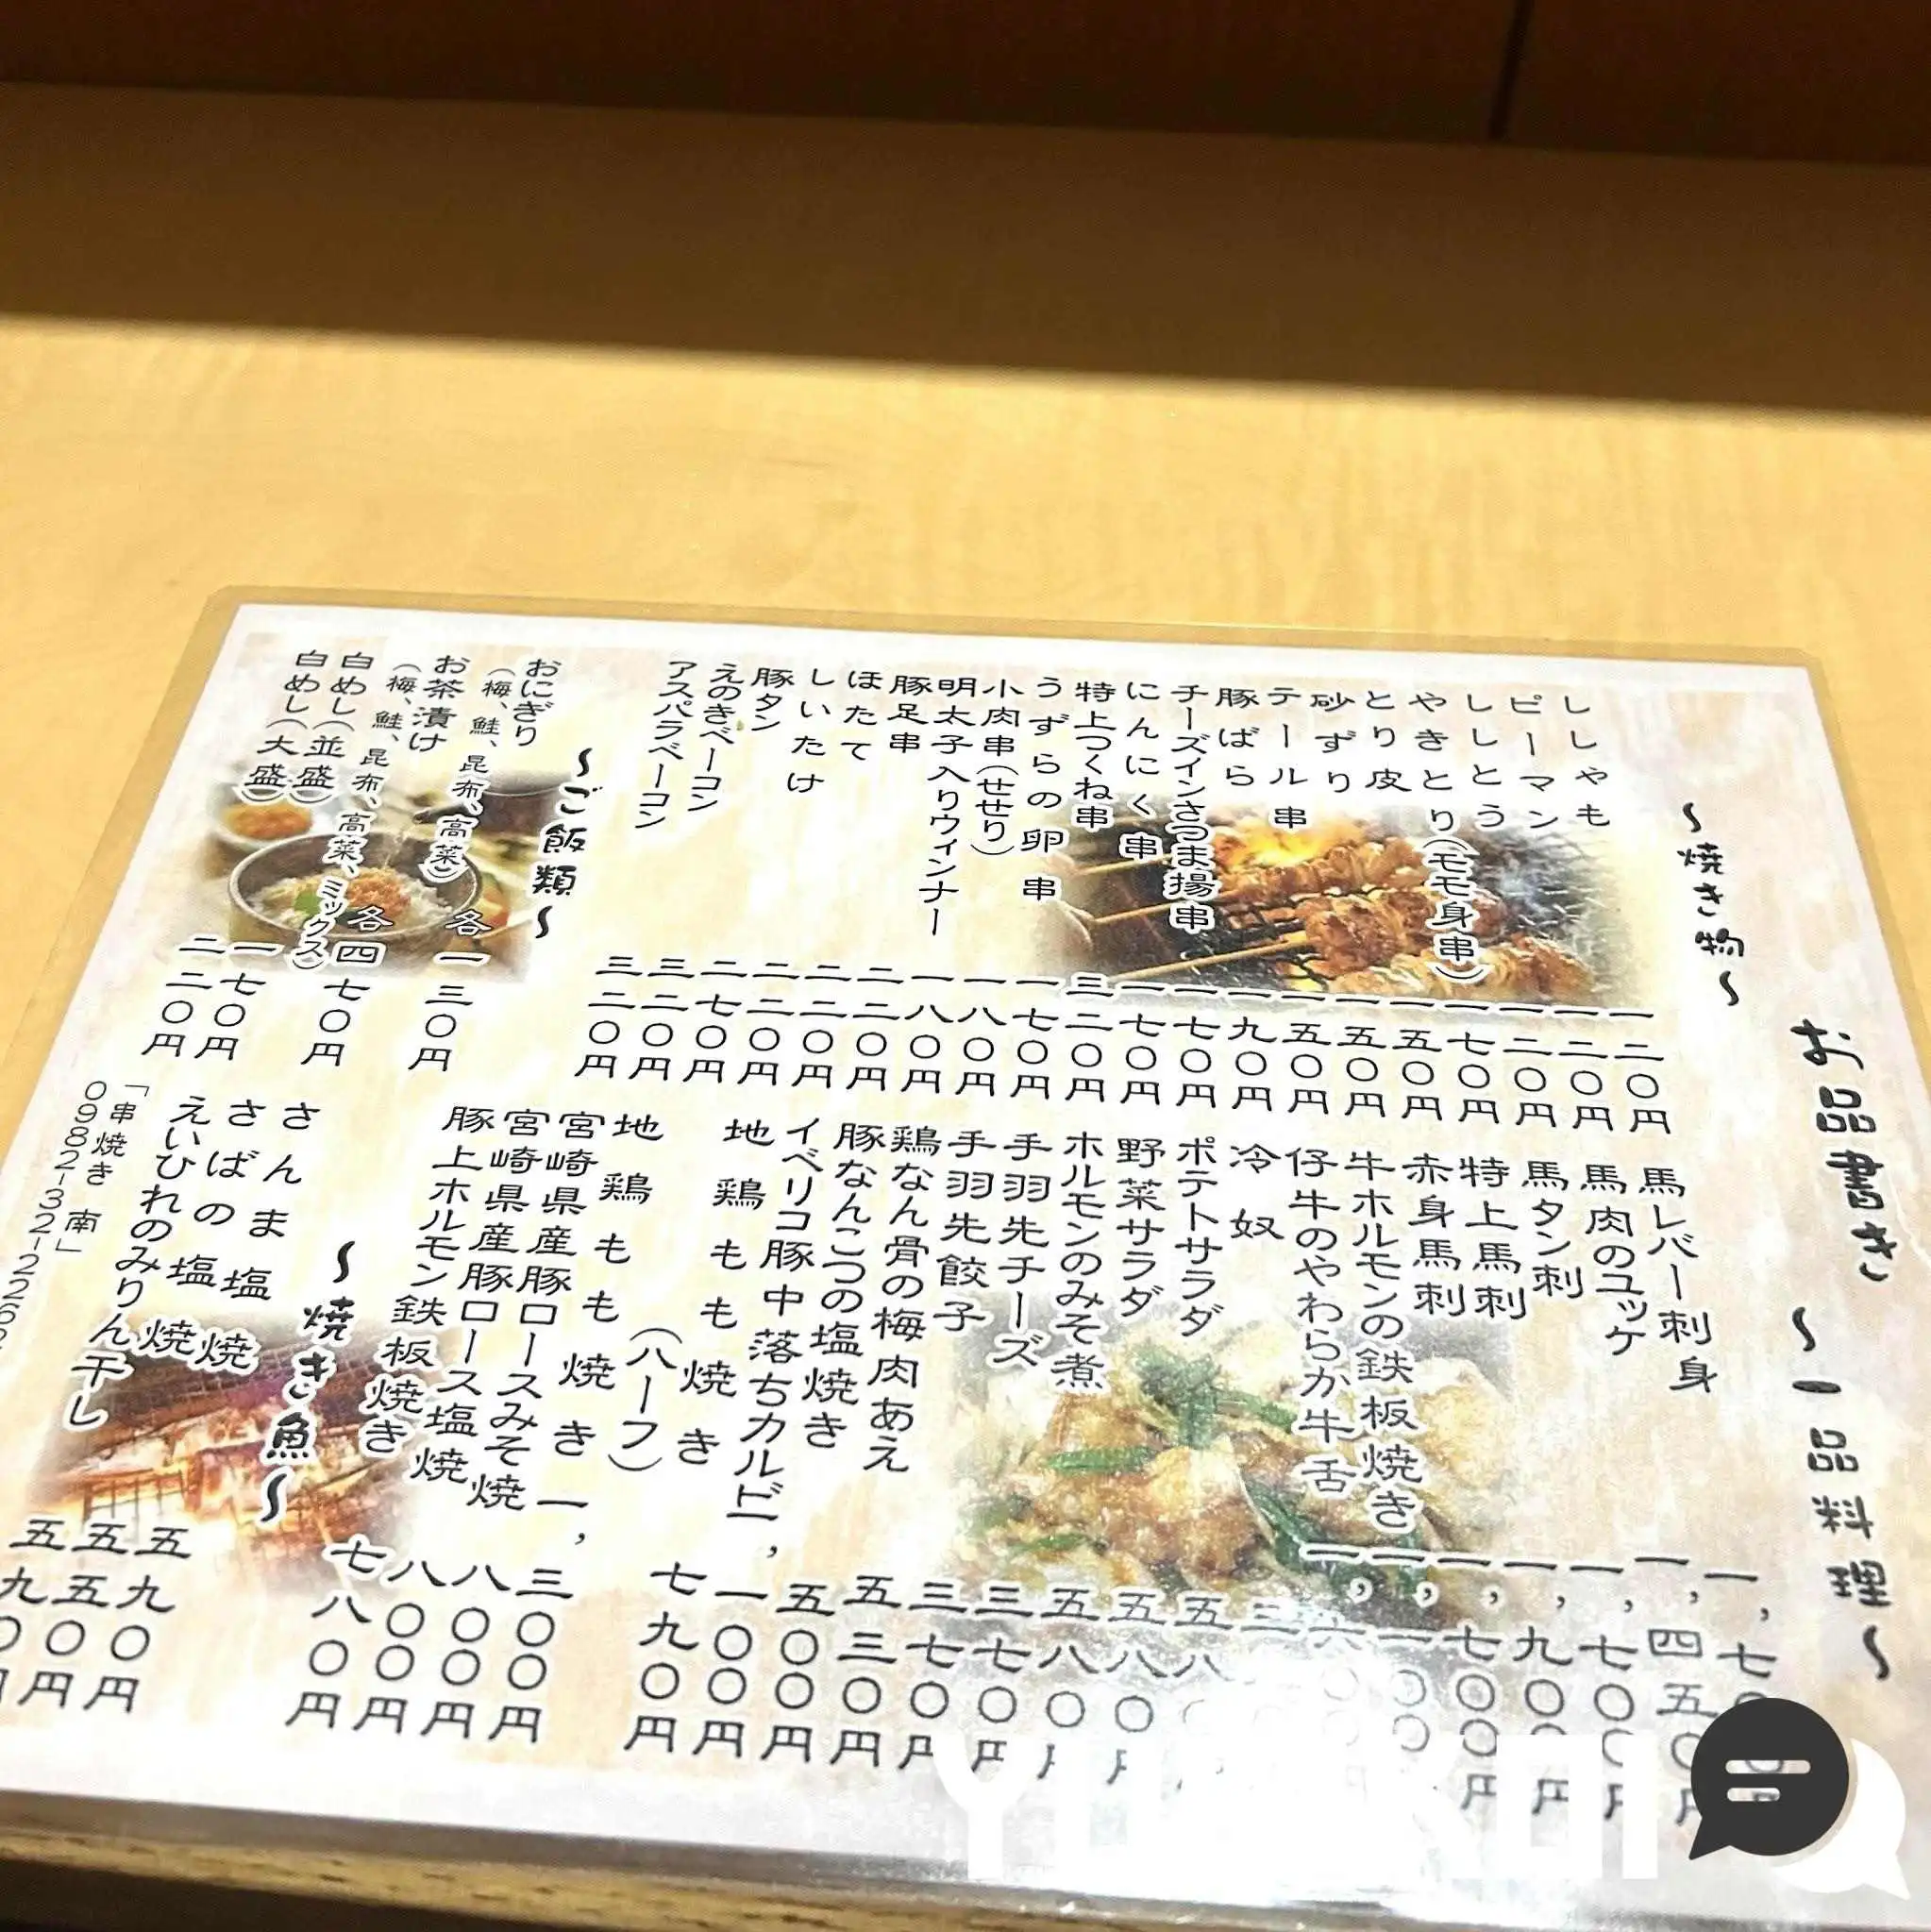 お品書き
～焼き物～
ししゃも 一二〇円
ピーマン 一二〇円
ししとう 一二〇円
やきとり(モモ身串) 一七〇円
とり皮 一五〇円
砂ずり 一五〇円
テール串 一五〇円
豚ばら 一九〇円
チーズインさつま揚串 一七〇円
にんにく串 一七〇円
特上つくね串 三二〇円
うずらの卵串 一七〇円
小肉串(せせり) 一八〇円
明太子入りウィンナー 一八〇円
豚足串 二二〇円
ほたて 二二〇円
しいたけ 二二〇円
豚タン 二七〇円
えのきベーコン 三二〇円
アスパラベーコン 三二〇円
～ご飯類～
おにぎり
(梅、鮭、昆布、高菜) 各一三〇円
お茶漬け
(梅、鮭、昆布、高菜、ミックス) 各四七〇円
白めし(並盛) 一七〇円
白めし(大盛) 二二〇円
～一品料理～
馬レバー刺身 一,七
馬肉のユッケ 一,四五〇円
馬タン刺 一,七〇〇円
特上馬刺 一,九〇〇円
赤身馬刺 一,七〇〇円
牛ホルモンの鉄板焼き 一,一〇〇
仔牛のやわらか牛舌 一,六
冷奴
ポテトサラダ 五八
野菜サラダ 五八〇円
ホルモンのみそ煮 五八〇円
手羽先チーズ 三七〇円
手羽先餃子 三七〇円
鶏なん骨の梅肉あえ 五三〇円
豚なんこつの塩焼き 五〇〇円
イベリコ豚中落ちカルビ 一,一〇〇円
地鶏もも焼き
(ハーフ) 七九〇円
地鶏もも焼き 一,三〇〇円
宮崎県産豚ロースみそ焼 八〇〇円
宮崎県産豚ロース塩焼 八〇〇円
豚上ホルモン鉄板焼き 七八〇円
～焼き魚～
さんま塩焼 五九〇円
さばの塩焼 五五〇円
えいひれのみりん干し 五九〇円
「串焼き 南」
0982-32-2262